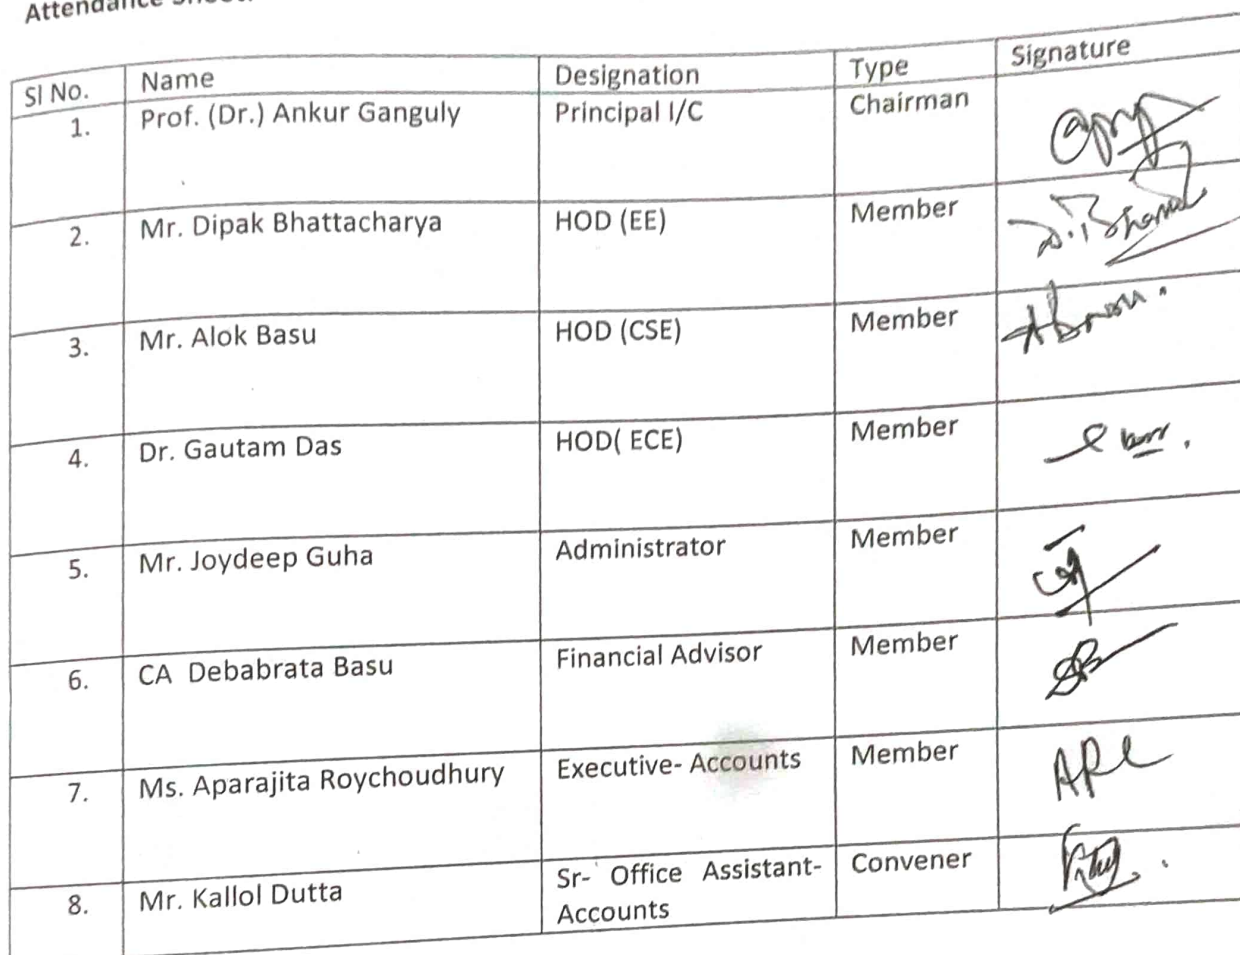 Attendance Sheet:
Sl No. Name Designation Type Signature
1. Prof. (Dr.) Ankur Ganguly Principal I/C Chairman
2. Mr. Dipak Bhattacharya HOD (EE) Member
3. Mr. Alok Basu HOD (CSE) Member
4. Dr. Gautam Das HOD( ECE) Member
5. Mr. Joydeep Guha Administrator Member
6. CA Debabrata Basu Financial Advisor Member
7. Ms. Aparajita Roychoudhury Executive- Accounts Member
8. Mr. Kallol Dutta Sr- Office Assistant- Convener
Accounts